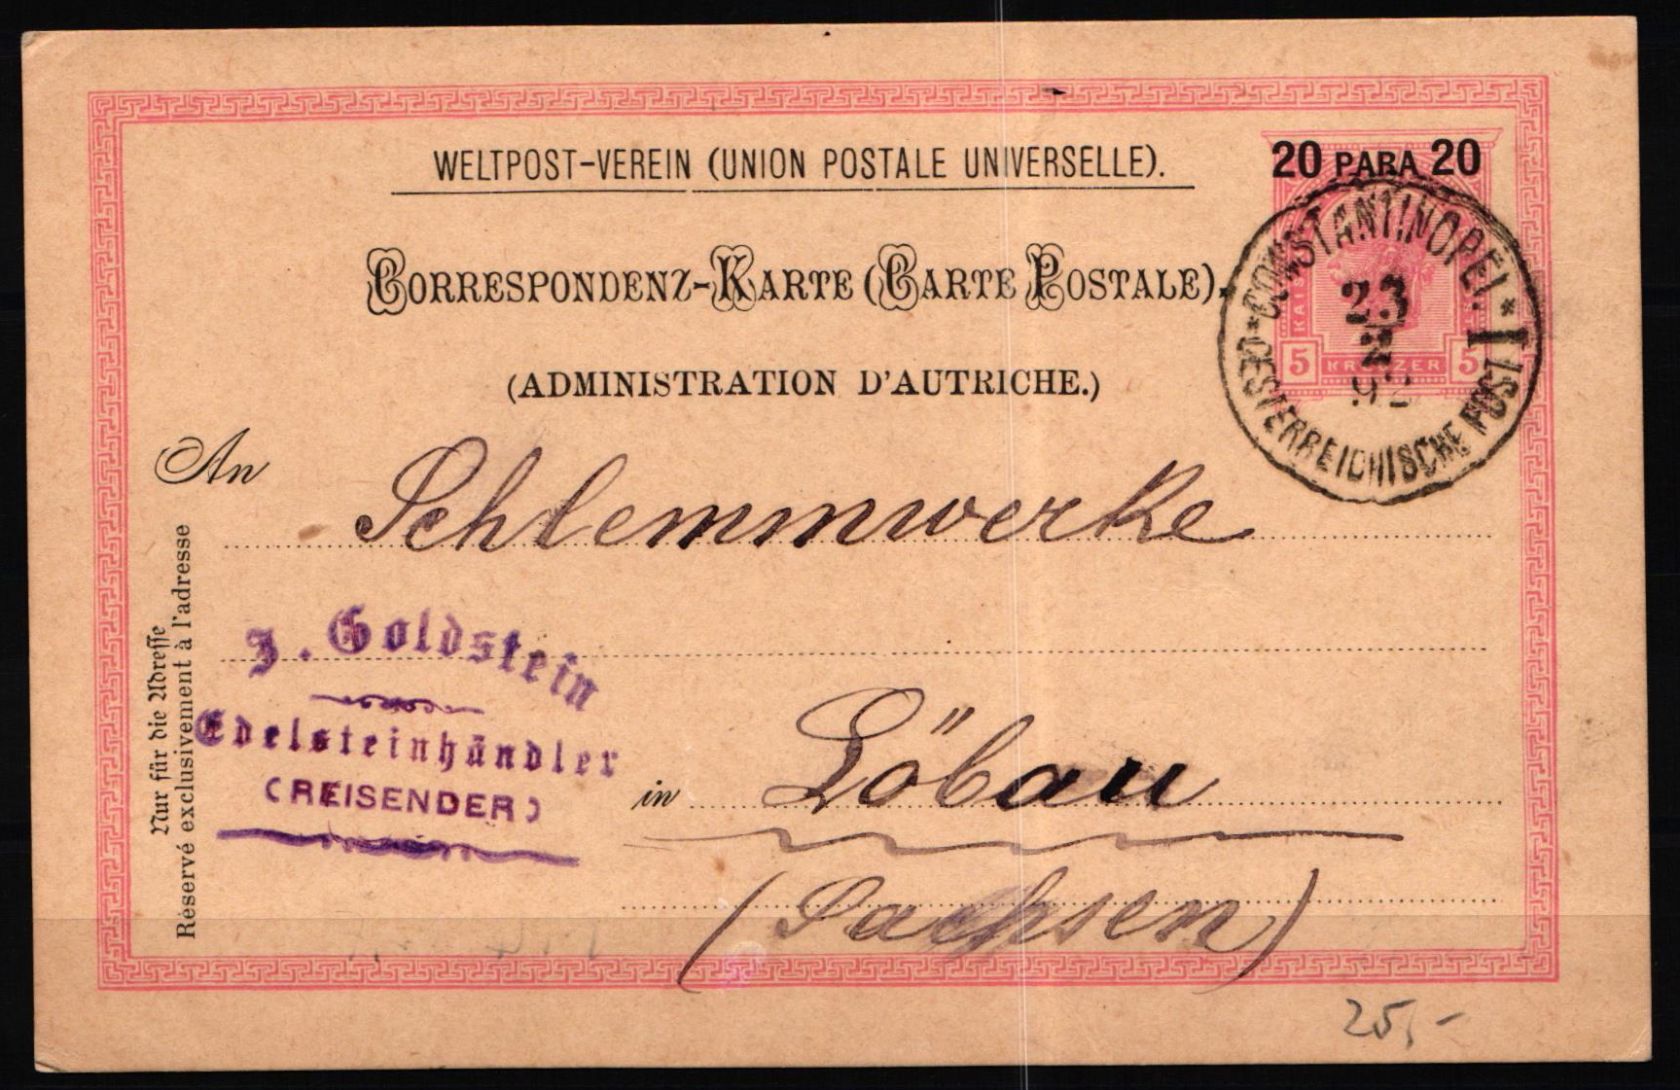 WELTPOST-VEREIN (UNION POSTALE UNIVERSELLE).
20 PARA 20
CORRESPONDENZ-KARTE (CARTE POSTALE).
(ADMINISTRATION D'AUTRICHE.)
* CONSTANTINOPEL * I
OESTERREICHISCHE POST
23
5 KREUZER 5
An Schlemmwerke
J. Goldstein
Edelsteinhändler
(REISENDER)
in Löbau
(Sachsen)
Nur für die Adresse
Réservé exclusivement à l'adresse
25,-